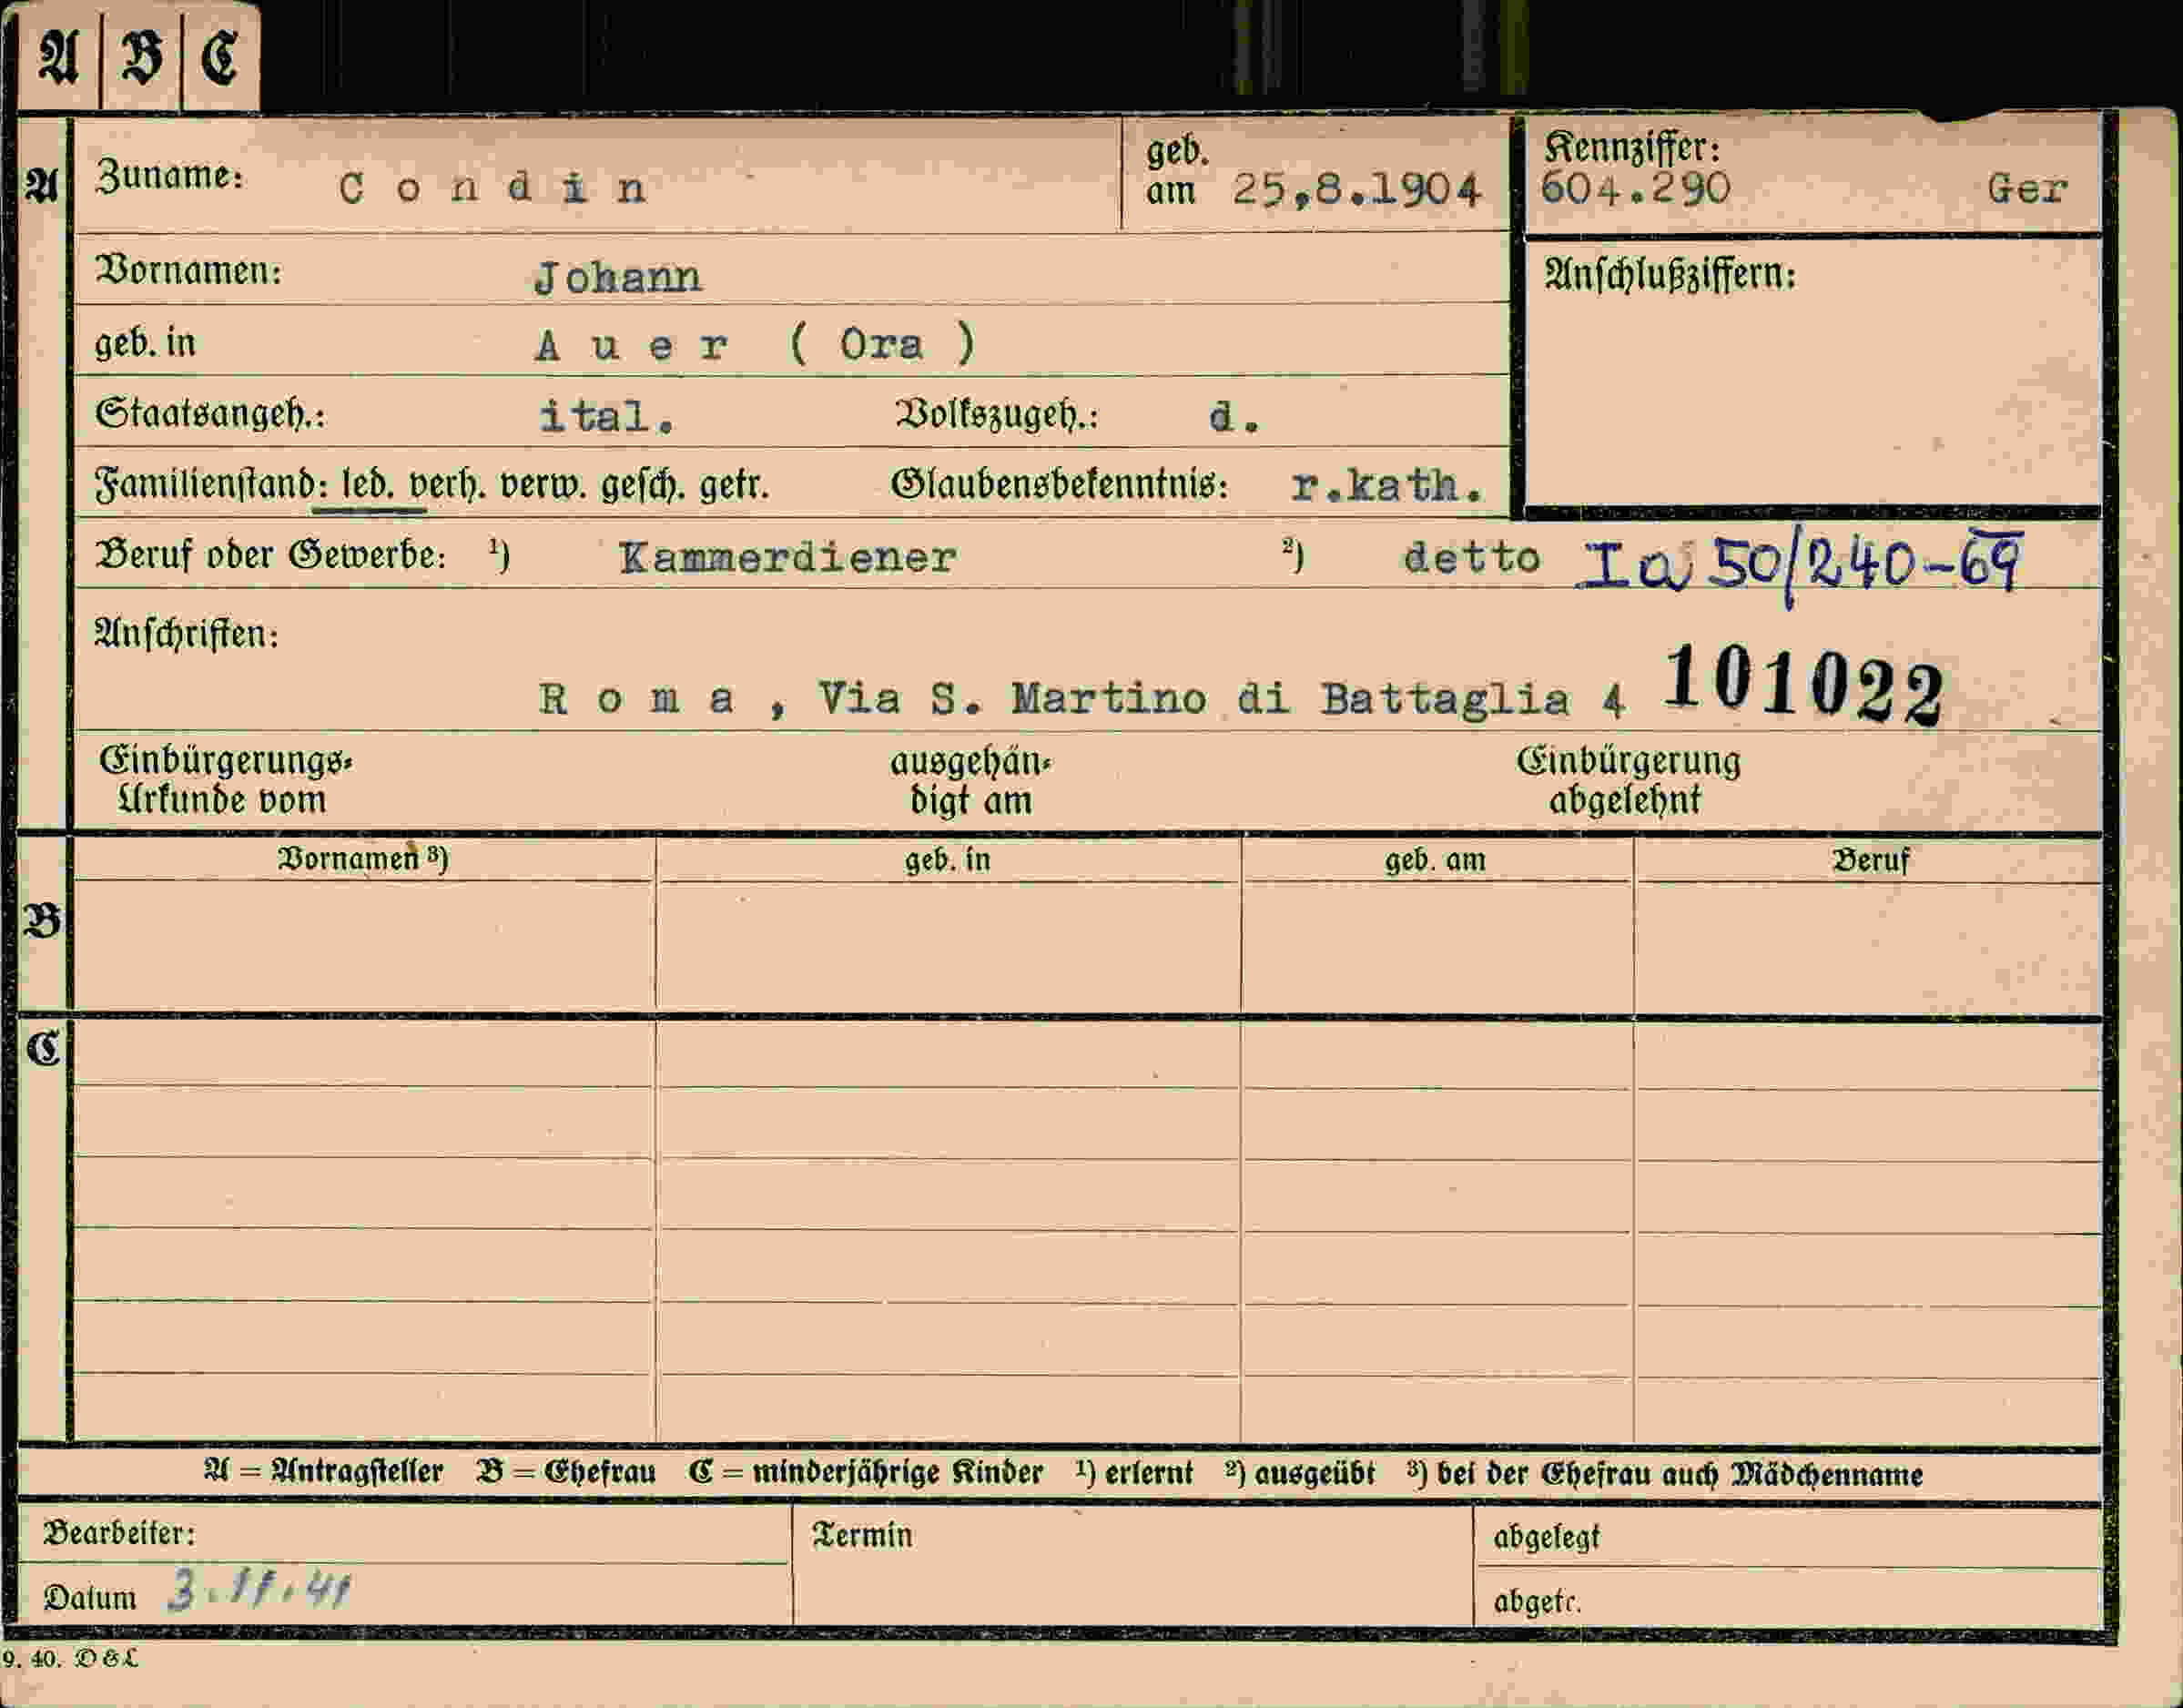 A B C
A
Zuname: Condin
geb. am 25,8.1904
Kennziffer: 604.290 Ger
Vornamen: Johann
Anschlußziffern:
geb. in Auer ( Ora )
Staatsangeh.: ital. Volkszugeh.: d.
Familienstand: led. verh. verw. gesch. getr. Glaubensbekenntnis: r.kath.
Beruf oder Gewerbe: ¹) Kammerdiener ²) detto Ia 50/240-69
Anschriften:
Roma, Via S. Martino di Battaglia 4 101022
Einbürgerungs-Urkunde vom ausgehändigt am Einbürgerung abgelehnt
Vornamen ³) geb. in geb. am Beruf
B
C
A = Antragsteller B = Ehefrau C = minderjährige Kinder ¹) erlernt ²) ausgeübt ³) bei der Ehefrau auch Mädchenname
Bearbeiter: Termin abgelegt
Datum 3.11.41 abgetr.
9. 40. D&L